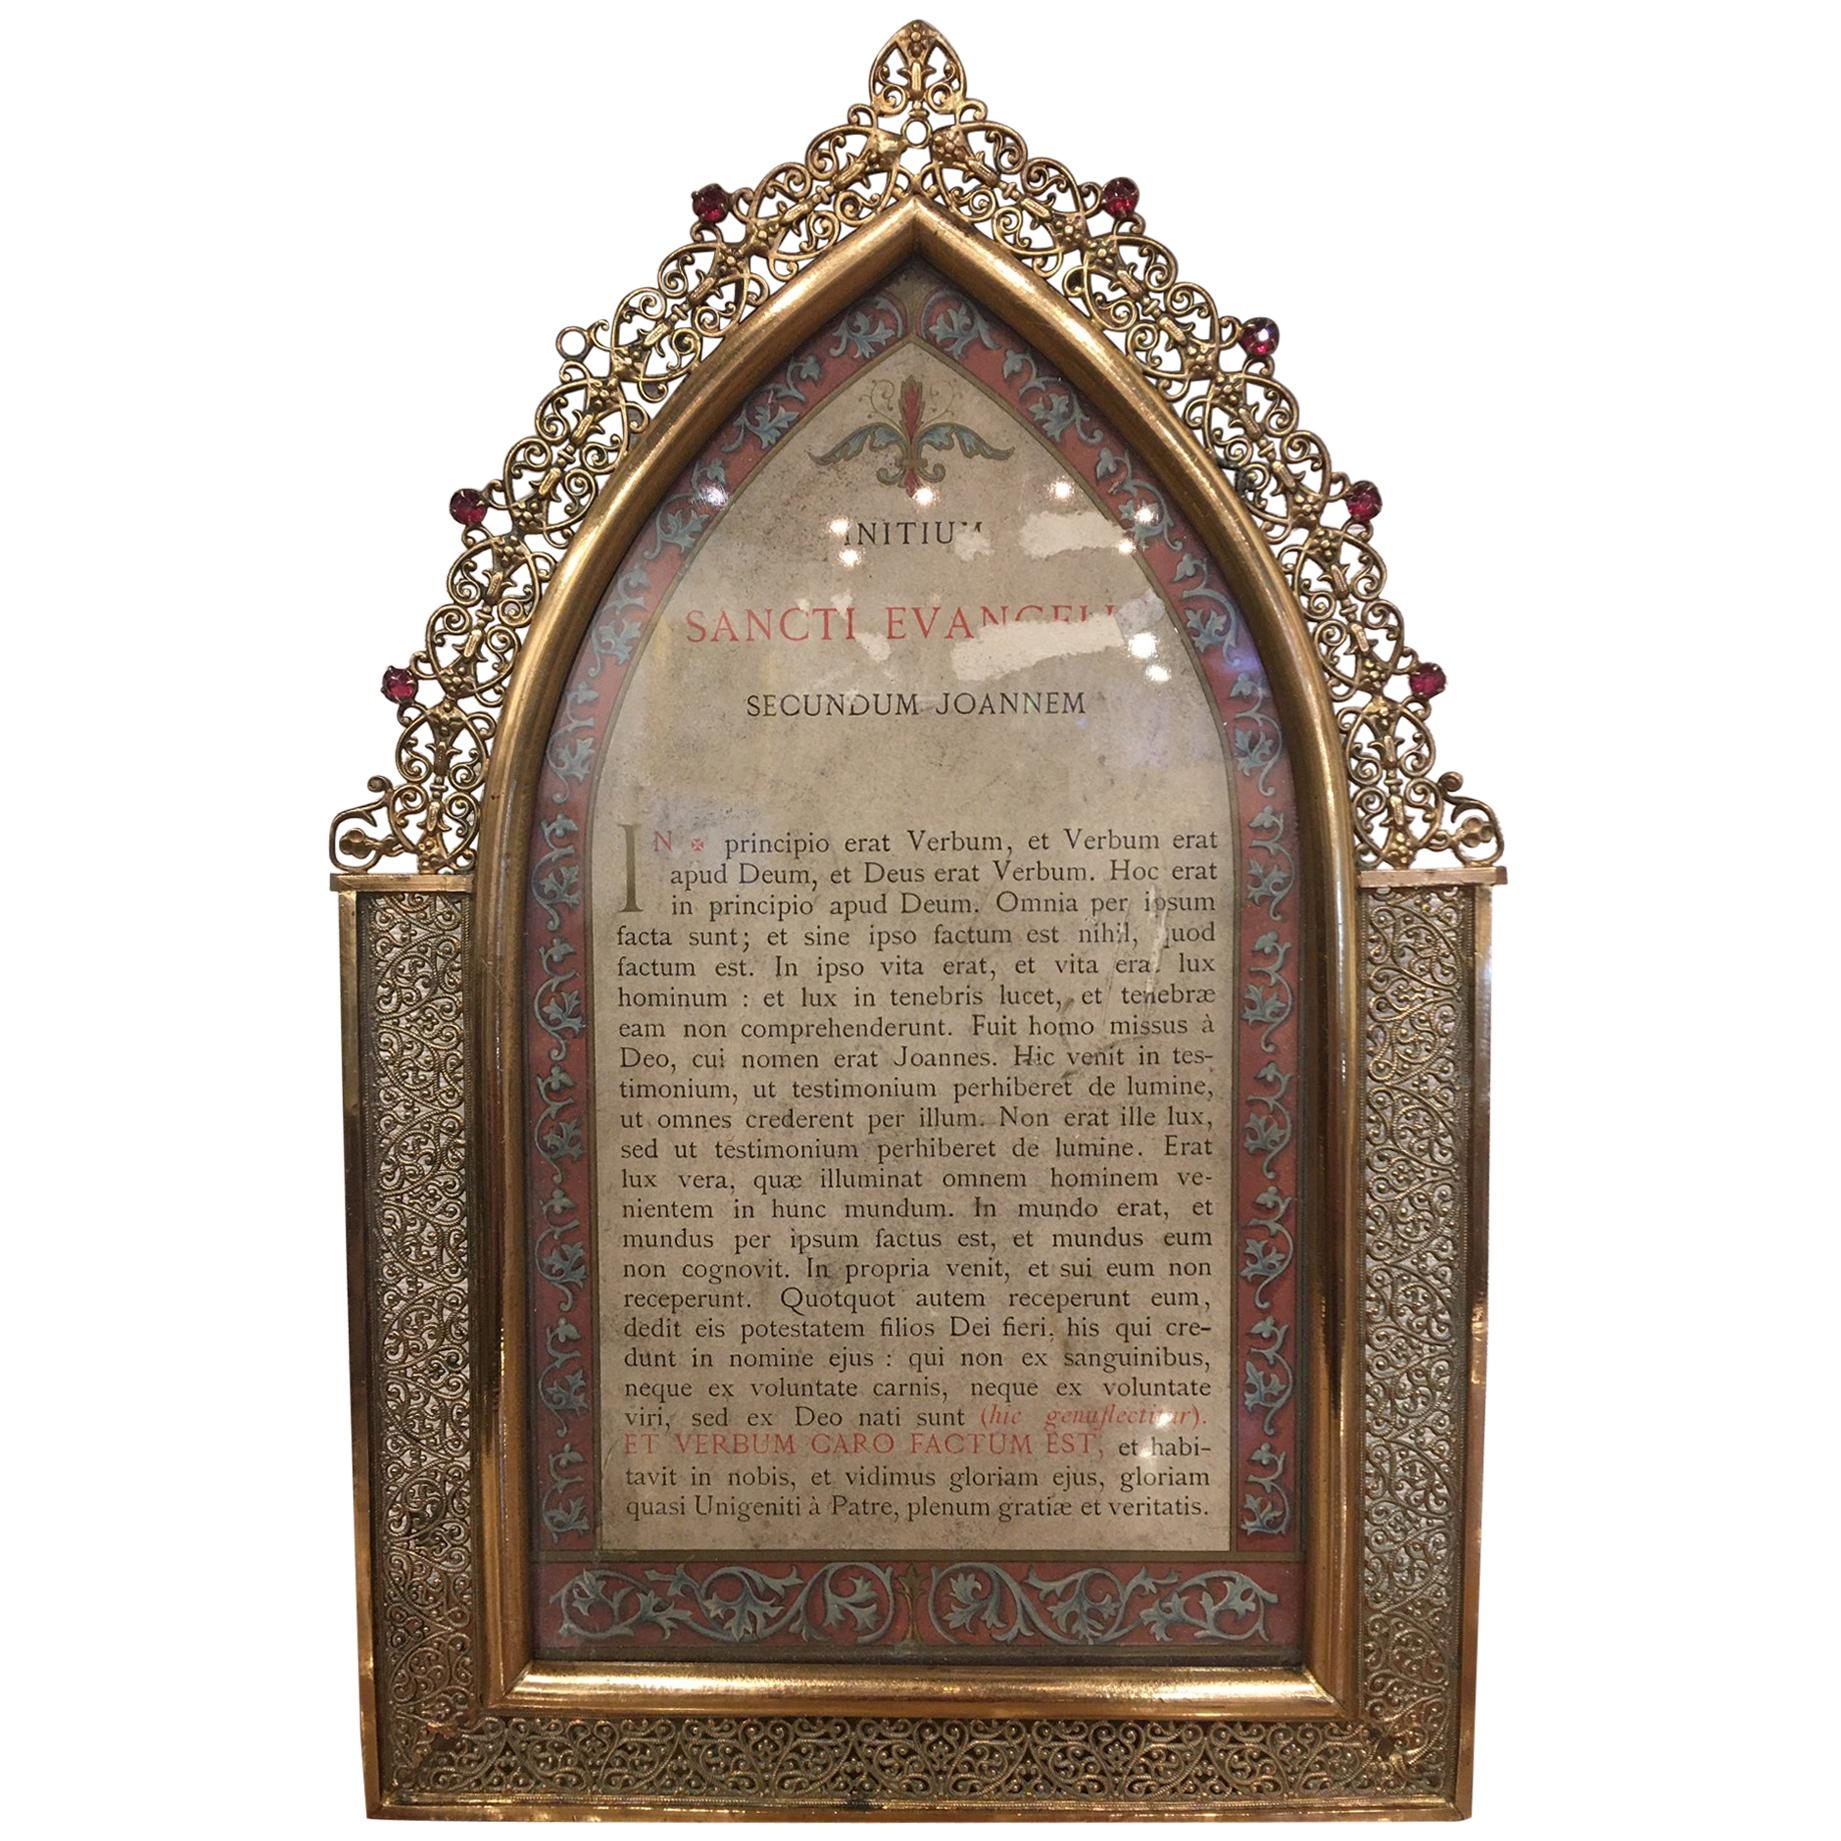 INITIUM
SANCTI EVANGELII
SECUNDUM JOANNEM
IN ✠ principio erat Verbum, et Verbum erat
apud Deum, et Deus erat Verbum. Hoc erat
in principio apud Deum. Omnia per ipsum
facta sunt; et sine ipso factum est nihil, quod
factum est. In ipso vita erat, et vita erat lux
hominum : et lux in tenebris lucet, et tenebræ
eam non comprehenderunt. Fuit homo missus à
Deo, cui nomen erat Joannes. Hic venit in tes-
timonium, ut testimonium perhiberet de lumine,
ut omnes crederent per illum. Non erat ille lux,
sed ut testimonium perhiberet de lumine. Erat
lux vera, quæ illuminat omnem hominem ve-
nientem in hunc mundum. In mundo erat, et
mundus per ipsum factus est, et mundus eum
non cognovit. In propria venit, et sui eum non
receperunt. Quotquot autem receperunt eum,
dedit eis potestatem filios Dei fieri, his qui cre-
dunt in nomine ejus : qui non ex sanguinibus,
neque ex voluntate carnis, neque ex voluntate
viri, sed ex Deo nati sunt (hic genuflectitur).
ET VERBUM CARO FACTUM EST, et habi-
tavit in nobis, et vidimus gloriam ejus, gloriam
quasi Unigeniti à Patre, plenum gratiæ et veritatis.